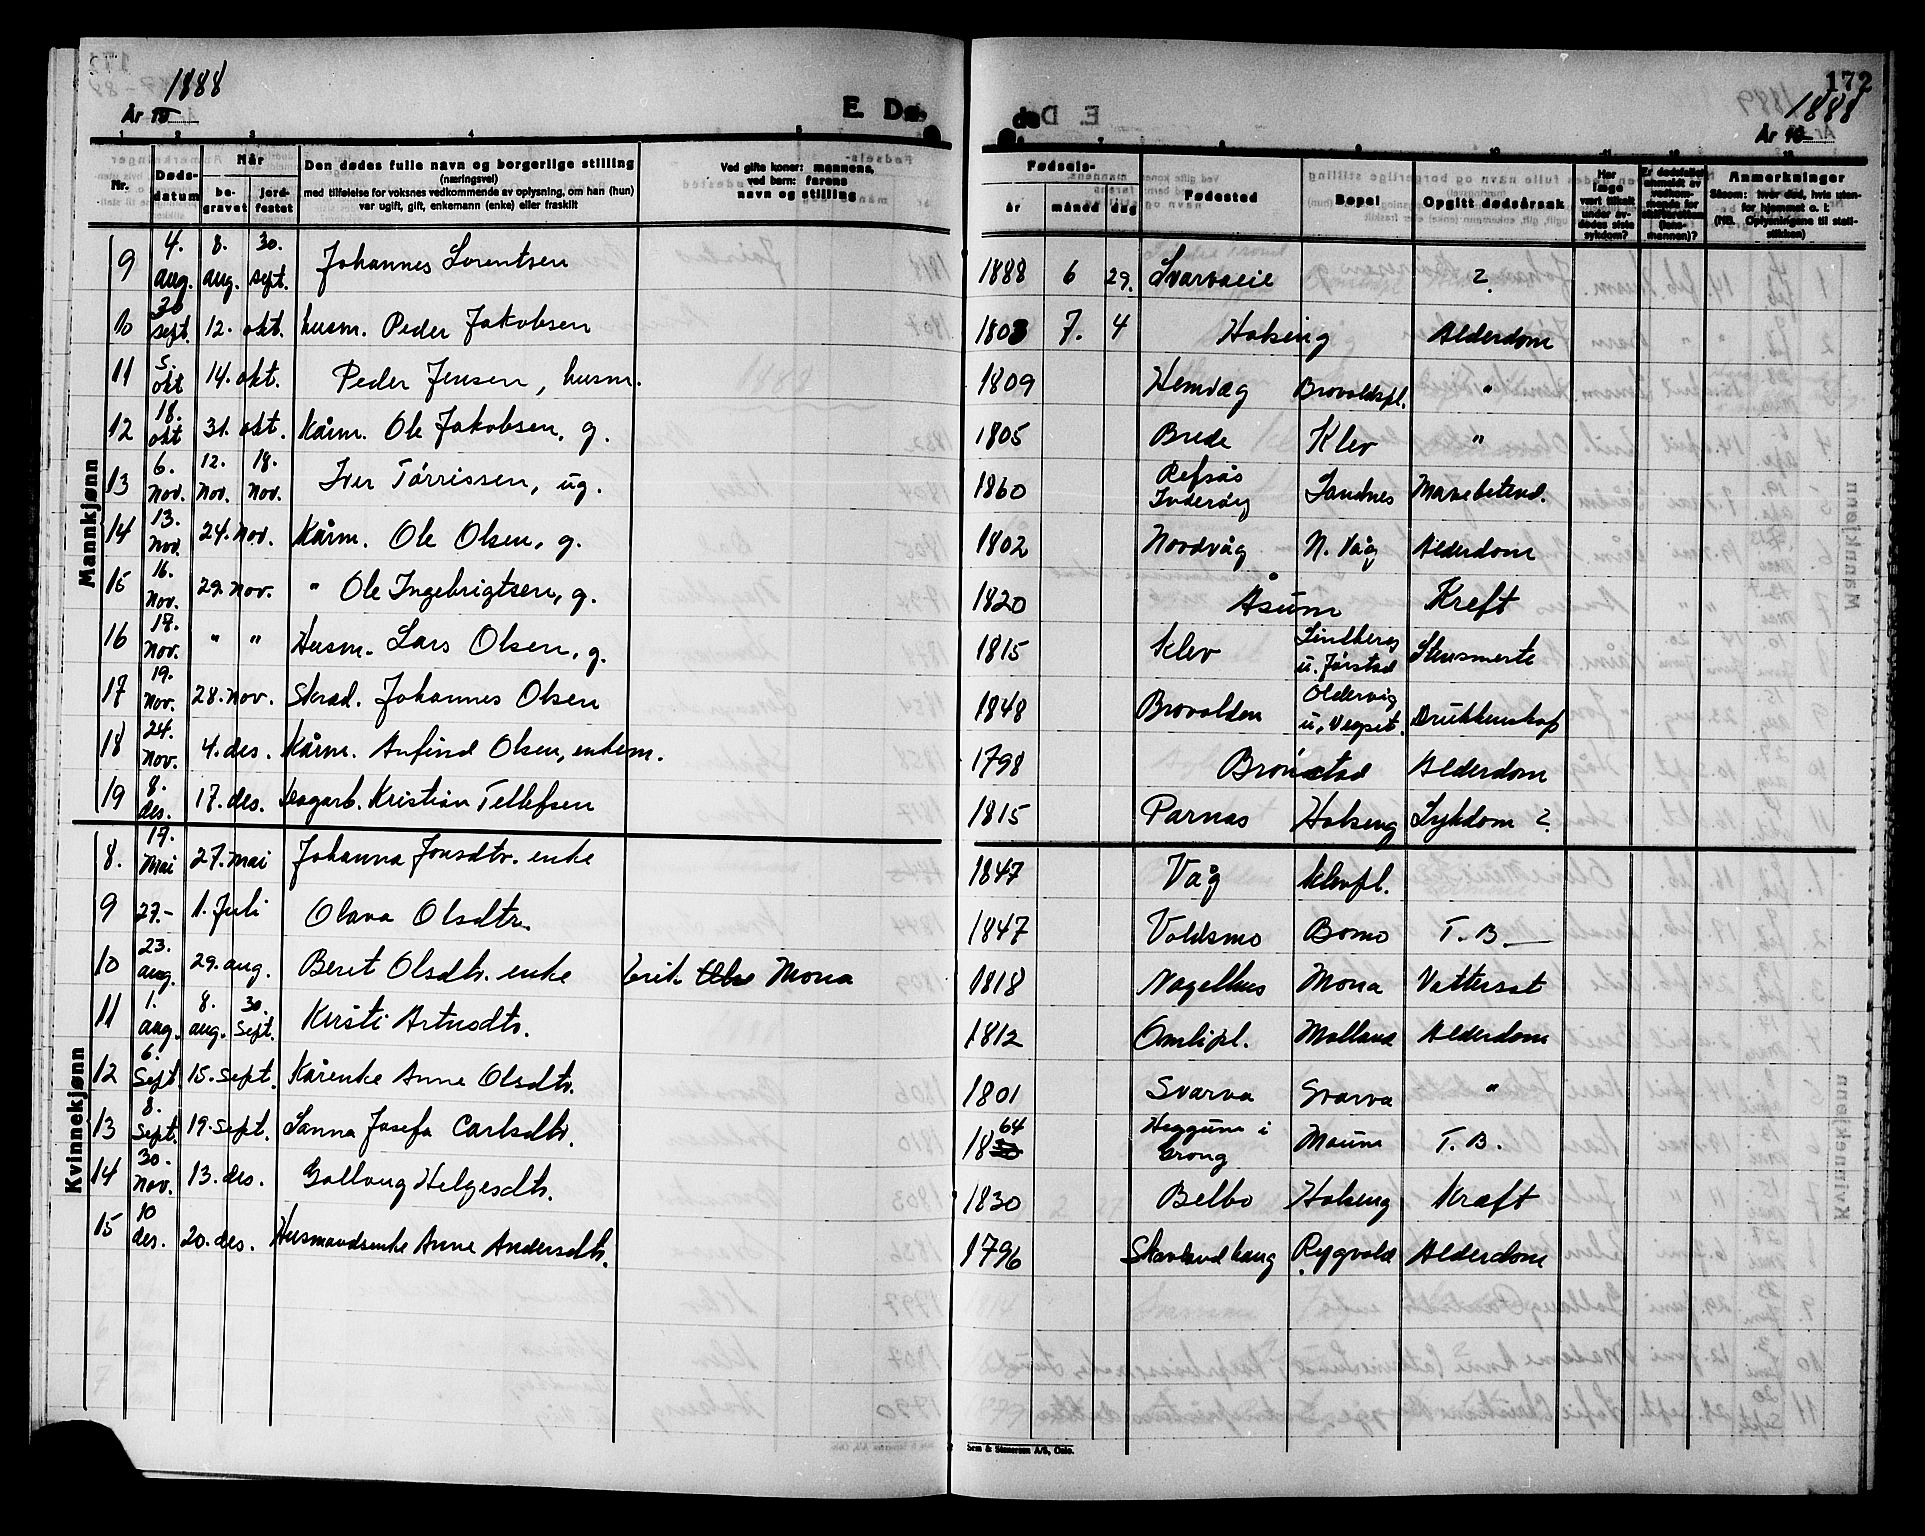 1888
År 18
E. Dø-
de
172
1888
År 18
1 2 3 4 5 6 7 8 9 10 11 12 13
Nr.
Døds-
datum
Når
be-
gravet
jord-
festet
Den dødes fulle navn og borgerlige stilling
(næringsvei)
med tilføielse for voksnes vedkommende av oplysning, om han (hun)
var ugift, gift, enkemann (enke) eller fraskilt
Ved gifte koner: mannens,
ved barn: farens
navn og stilling
Fødsels-
år måned dag
Fødested
Bopel
Opgitt dødsårsak
Har
læge
vært tilkalt
under av-
dødes siste
sykdom?
Er dødsfallet
anmeldt av
vedkom-
mende for
skifteretten
(lens-
mannen)?
Anmerkninger
Såsom: hvor død, hvis uten-
for hjemmet o. l.
(NB. Oplysningene til stati-
stikken)
Mannkjønn
9 4. aug. 8. aug. 30. sept. Johannes Lorentsen 1888 6 29. Svarvaeie ?
10 30 sept. 12. okt. husm. Peder Jakobsen 1803 7. 4 Halseng Alderdom
11 5. okt 14. okt. Peder Jensen, husm. 1809 Hemvæg Brovoldspl. "
12 18. okt 31. okt. Kårm. Ole Jakobsen, g. 1805 Brede Klev "
13 6. Nov. 12. Nov. 18. Nov. Iver Tørrissen, ug. 1860 Refsås Inderøy Sandnes Mavebetend.
14 13. Nov. 24. Nov. Kårm. Ole Olsen, g. 1802 Nordvåg N. Våg Alderdom
15 16. Nov. 29. Nov. " Ole Ingebrigtsen, g. 1820 Åsum Kreft
16 18. Nov. " " Husm. Lars Olsen, g. 1815 Klev Lindberg u. Jørstad
17 19. Nov. 28. Nov. Skrad. Johannes Olsen 1848 Brovolden Oldervig u. Vegset. Drukkenskap
18 24. Nov. 4. des. Kårm. Anfind Olsen, enkem. 1798 Brønstad Alderdom
19 8. des. 17. des. Kristian Tellefsen 1815 Parnas Halseng Sykdom ?
Kvinnekjønn
8. 17. Mai 27. Mai Johanna Jonsdtr. enke 1847 Våg Klevpl.
9 27.- 1. Juli Olava Olsdtr. 1847 Voldsmo Bomo T. B.
10 23. aug. 29. aug. Berit Olsdtr. enke Erik Mona 1818 Nagelhus Mona Vattersot
11 1. aug. 8. aug. 30. Sept. Kirsti Arntsdtr. 1812 Omlipl. Molland Alderdom
12 6. Sept 15. Sept. Kårenke Anne Olsdtr. 1801 Svarva Svarva "
13 8. Sept. 19. Sept. Sanna Josefa Carlsdtr. 1864 Heggum i Grong Moum T. B.
14 30. Nov. 13. des. Gollaug Helgesdtr. 1830 Belbo Halseng Kræft
15 10 des. 20. des. Husmandsenke Anne Andersdtr. 1796 Skavlandhaug Rygvold Alderdom
Sem & Stenersen A/S, Oslo.